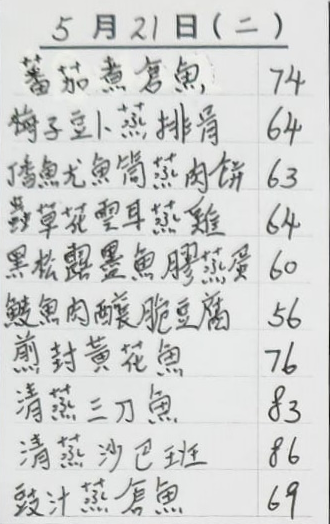 5月21日(二)
蕃茄煮倉魚 74
梅子豆卜蒸排骨 64
魷魚筒蒸肉餅 63
蟲草花雲耳蒸雞 64
黑松露墨魚膠蒸蛋 60
鯪魚肉釀脆豆腐 56
煎封黃花魚 76
清蒸三刀魚 83
清蒸沙巴班 86
豉汁蒸倉魚 69